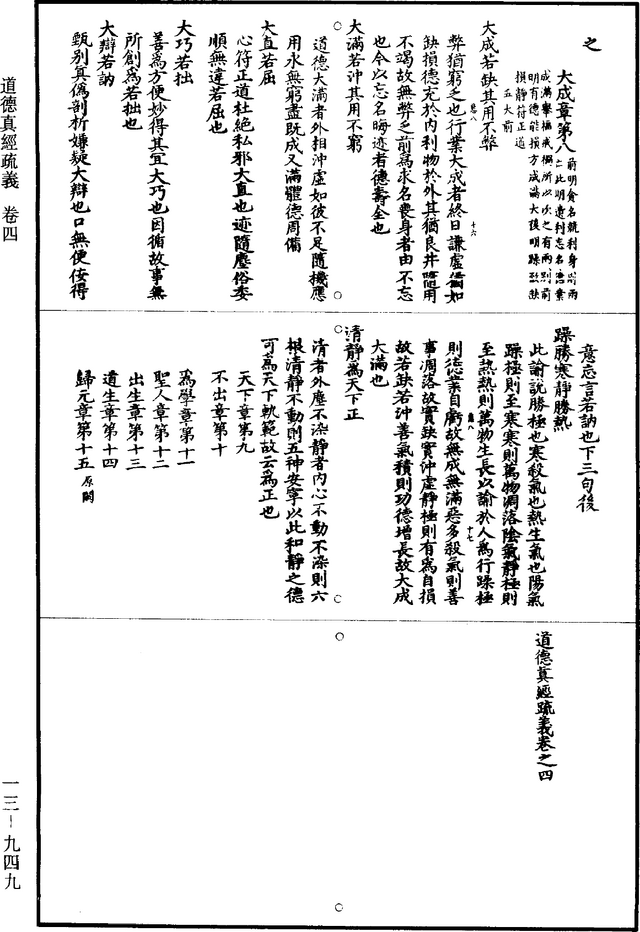 之
大成章第八
前明貪名就利身
此明遣利忘名德業
成滿舉樞戒樞所以次之有兩別前
明有德能損方成滿大後明躁缺
損靜符正道
五大前
大成若缺其用不弊
弊猶窮乏也行業大成者終日謙虛猶如
缺損德充於內利物於外其猶良井隨用
不竭故無弊乏前為求名喪身者由不忘
也今以忘名晦迹者德壽全也
大滿若沖其用不窮
道德大滿者外相沖虛如彼不足隨機應
用永無窮盡既成又滿體德周備
大直若屈
心符正道杜絕私邪大直也迹隨塵俗委
順無違若屈也
大巧若拙
善為方便妙得其宜大巧也因循故事無
所創為若拙也
大辯若訥
甄別真偽剖析嫌疑大辯也口無便佞得
意忘言若訥也下三句後
躁勝寒靜勝熱
此諭說勝極也寒殺氣也熱生氣也陽氣
躁極則至寒寒則萬物凋落陰氣靜極則
至熱熱則萬物生長以諭於人為行躁極
則德業自虧故無成無滿惡多殺氣則善
事凋落故實缺實沖虛靜極則有為自損
故若缺若沖善氣積則功德增長故大成
大滿也
清靜為天下正
清者外塵不染靜者內心不動不染則六
根清靜不動則五神安寧以此和靜之德
可為天下軌範故云為正也
天下章第九
不出章第十
為學章第十一
聖人章第十二
出生章第十三
道生章第十四
歸元章第十五 原闕
道德真經疏義卷之四
道德真經疏義 卷四
一三－九四九